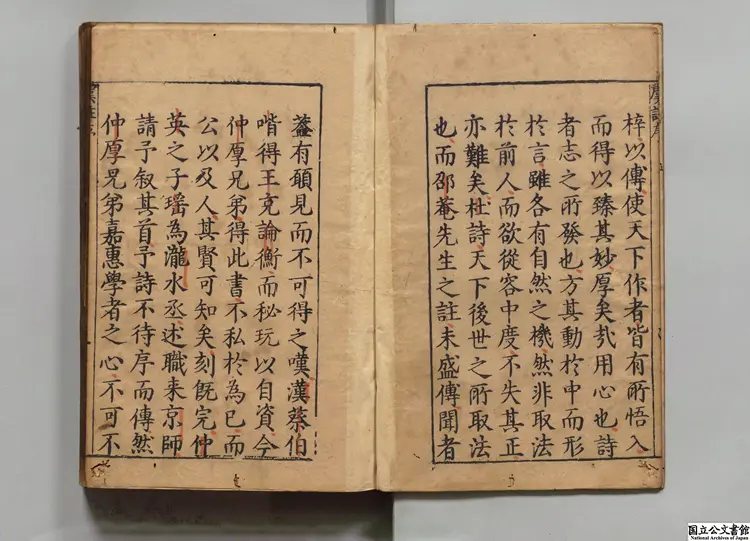 梓以傳使天下作者皆有所悟入
而得以臻其妙厚矣㢤用心也詩
者志之所發也方其動於中而形
於言雖各有自然之機然非取法
於前人而欲從容中度不失其正
亦難矣杜詩天下後世之所取法
也而邵菴先生之註未盛傳聞者
蓋有願見而不可得之嘆漢蔡伯
喈得王充論衡而秘玩以自資今
仲厚兄弟得此書不私於為已而
公以及人其賢可知矣刻既完仲
英之子瑶為瀧水丞述職来京師
請予叙其首予詩不待序而傳然
仲厚兄弟嘉惠學者之心不可不
国立公文書館
National Archives of Japan